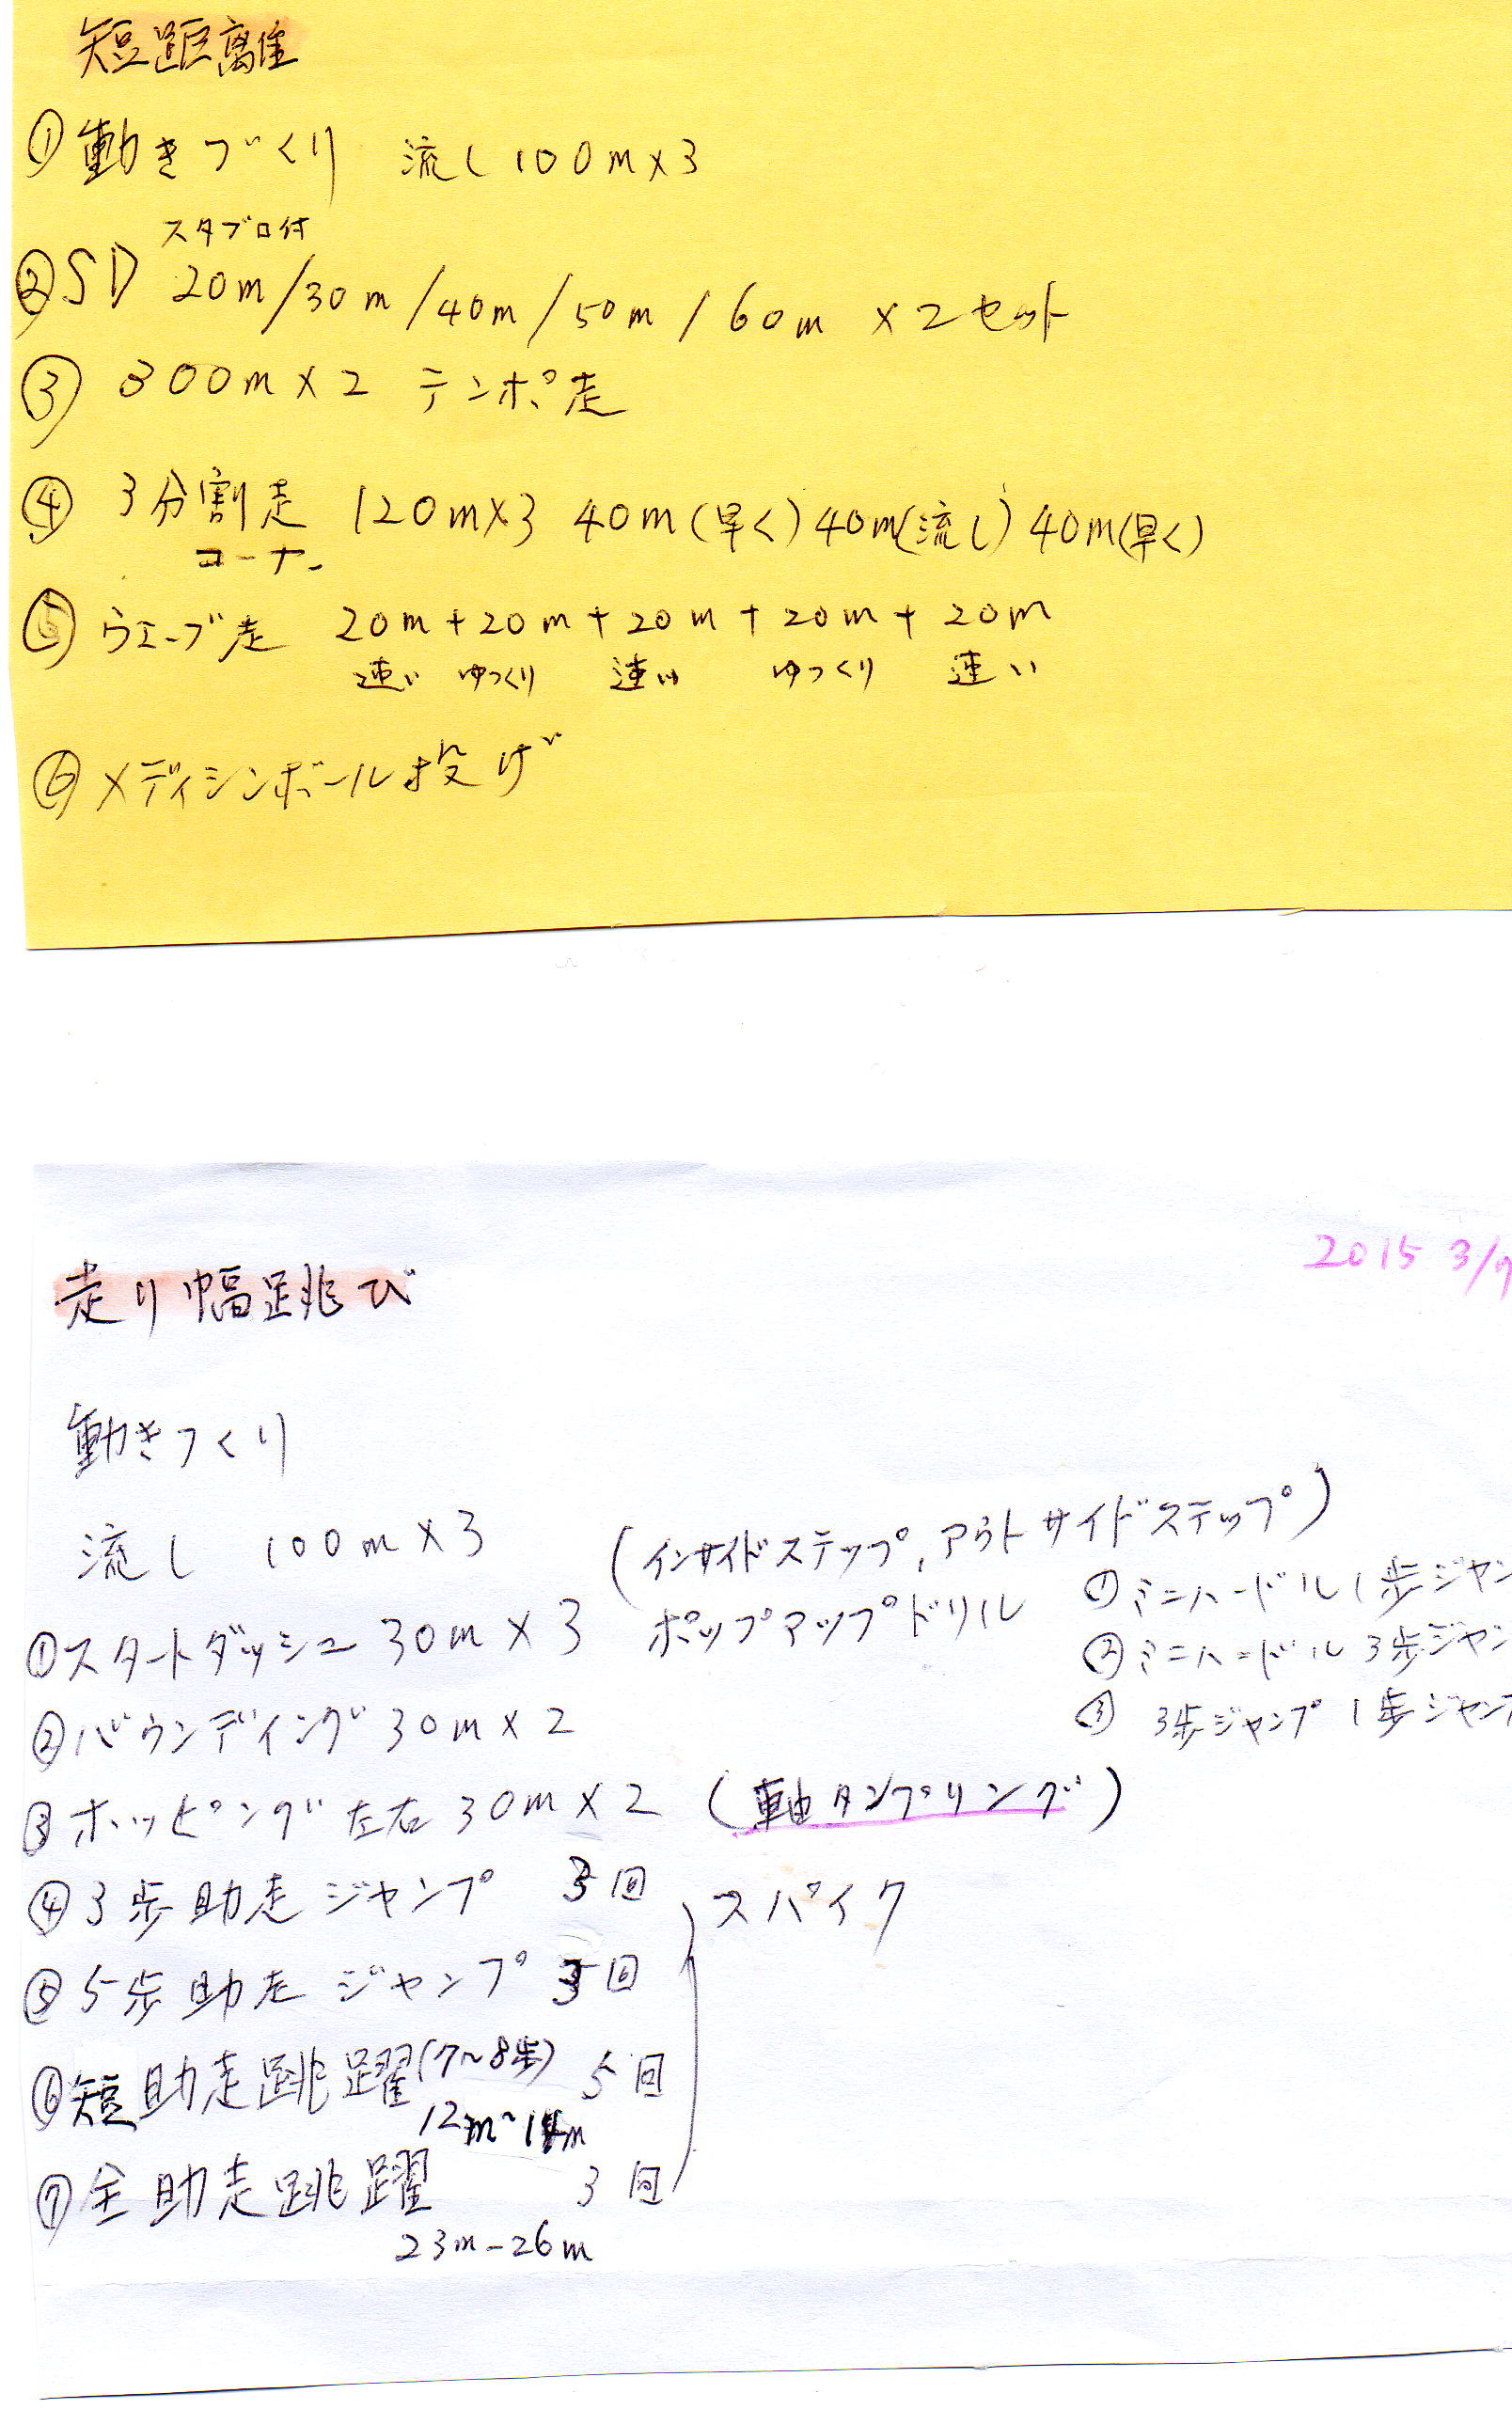 短距離
①動きづくり 流し100m×3
スタブロ付
②SD 20m/30m/40m/50m/60m ×2セット
③ 300m×2 テンポ走
④ 3分割走 120m×3 40m(早く)40m(流し)40m(早く)
コーナー
⑤ ウェーブ走 20m+20m+20m+20m+20m
速い ゆっくり 速い ゆっくり 速い
⑥メディシンボール投げ
2015 3/7
走り幅跳び
動きつくり
流し 100m×3 (インサイドステップ,アウトサイドステップ)
①スタートダッシュ30m×3 ポップアップドリル ①ミニハードル1歩ジャン
②ミニハードル3歩ジャン
②バウンディング30m×2 ③ 3歩ジャンプ1歩ジャンプ
③ホッピング左右30m×2 (軸タンプリング)
④3歩助走ジャンプ 3回 スパイク
⑤5歩助走ジャンプ 3回
⑥短助走跳躍(7~8歩) 5回
12m~14m
⑦全助走跳躍 3回
23m-26m